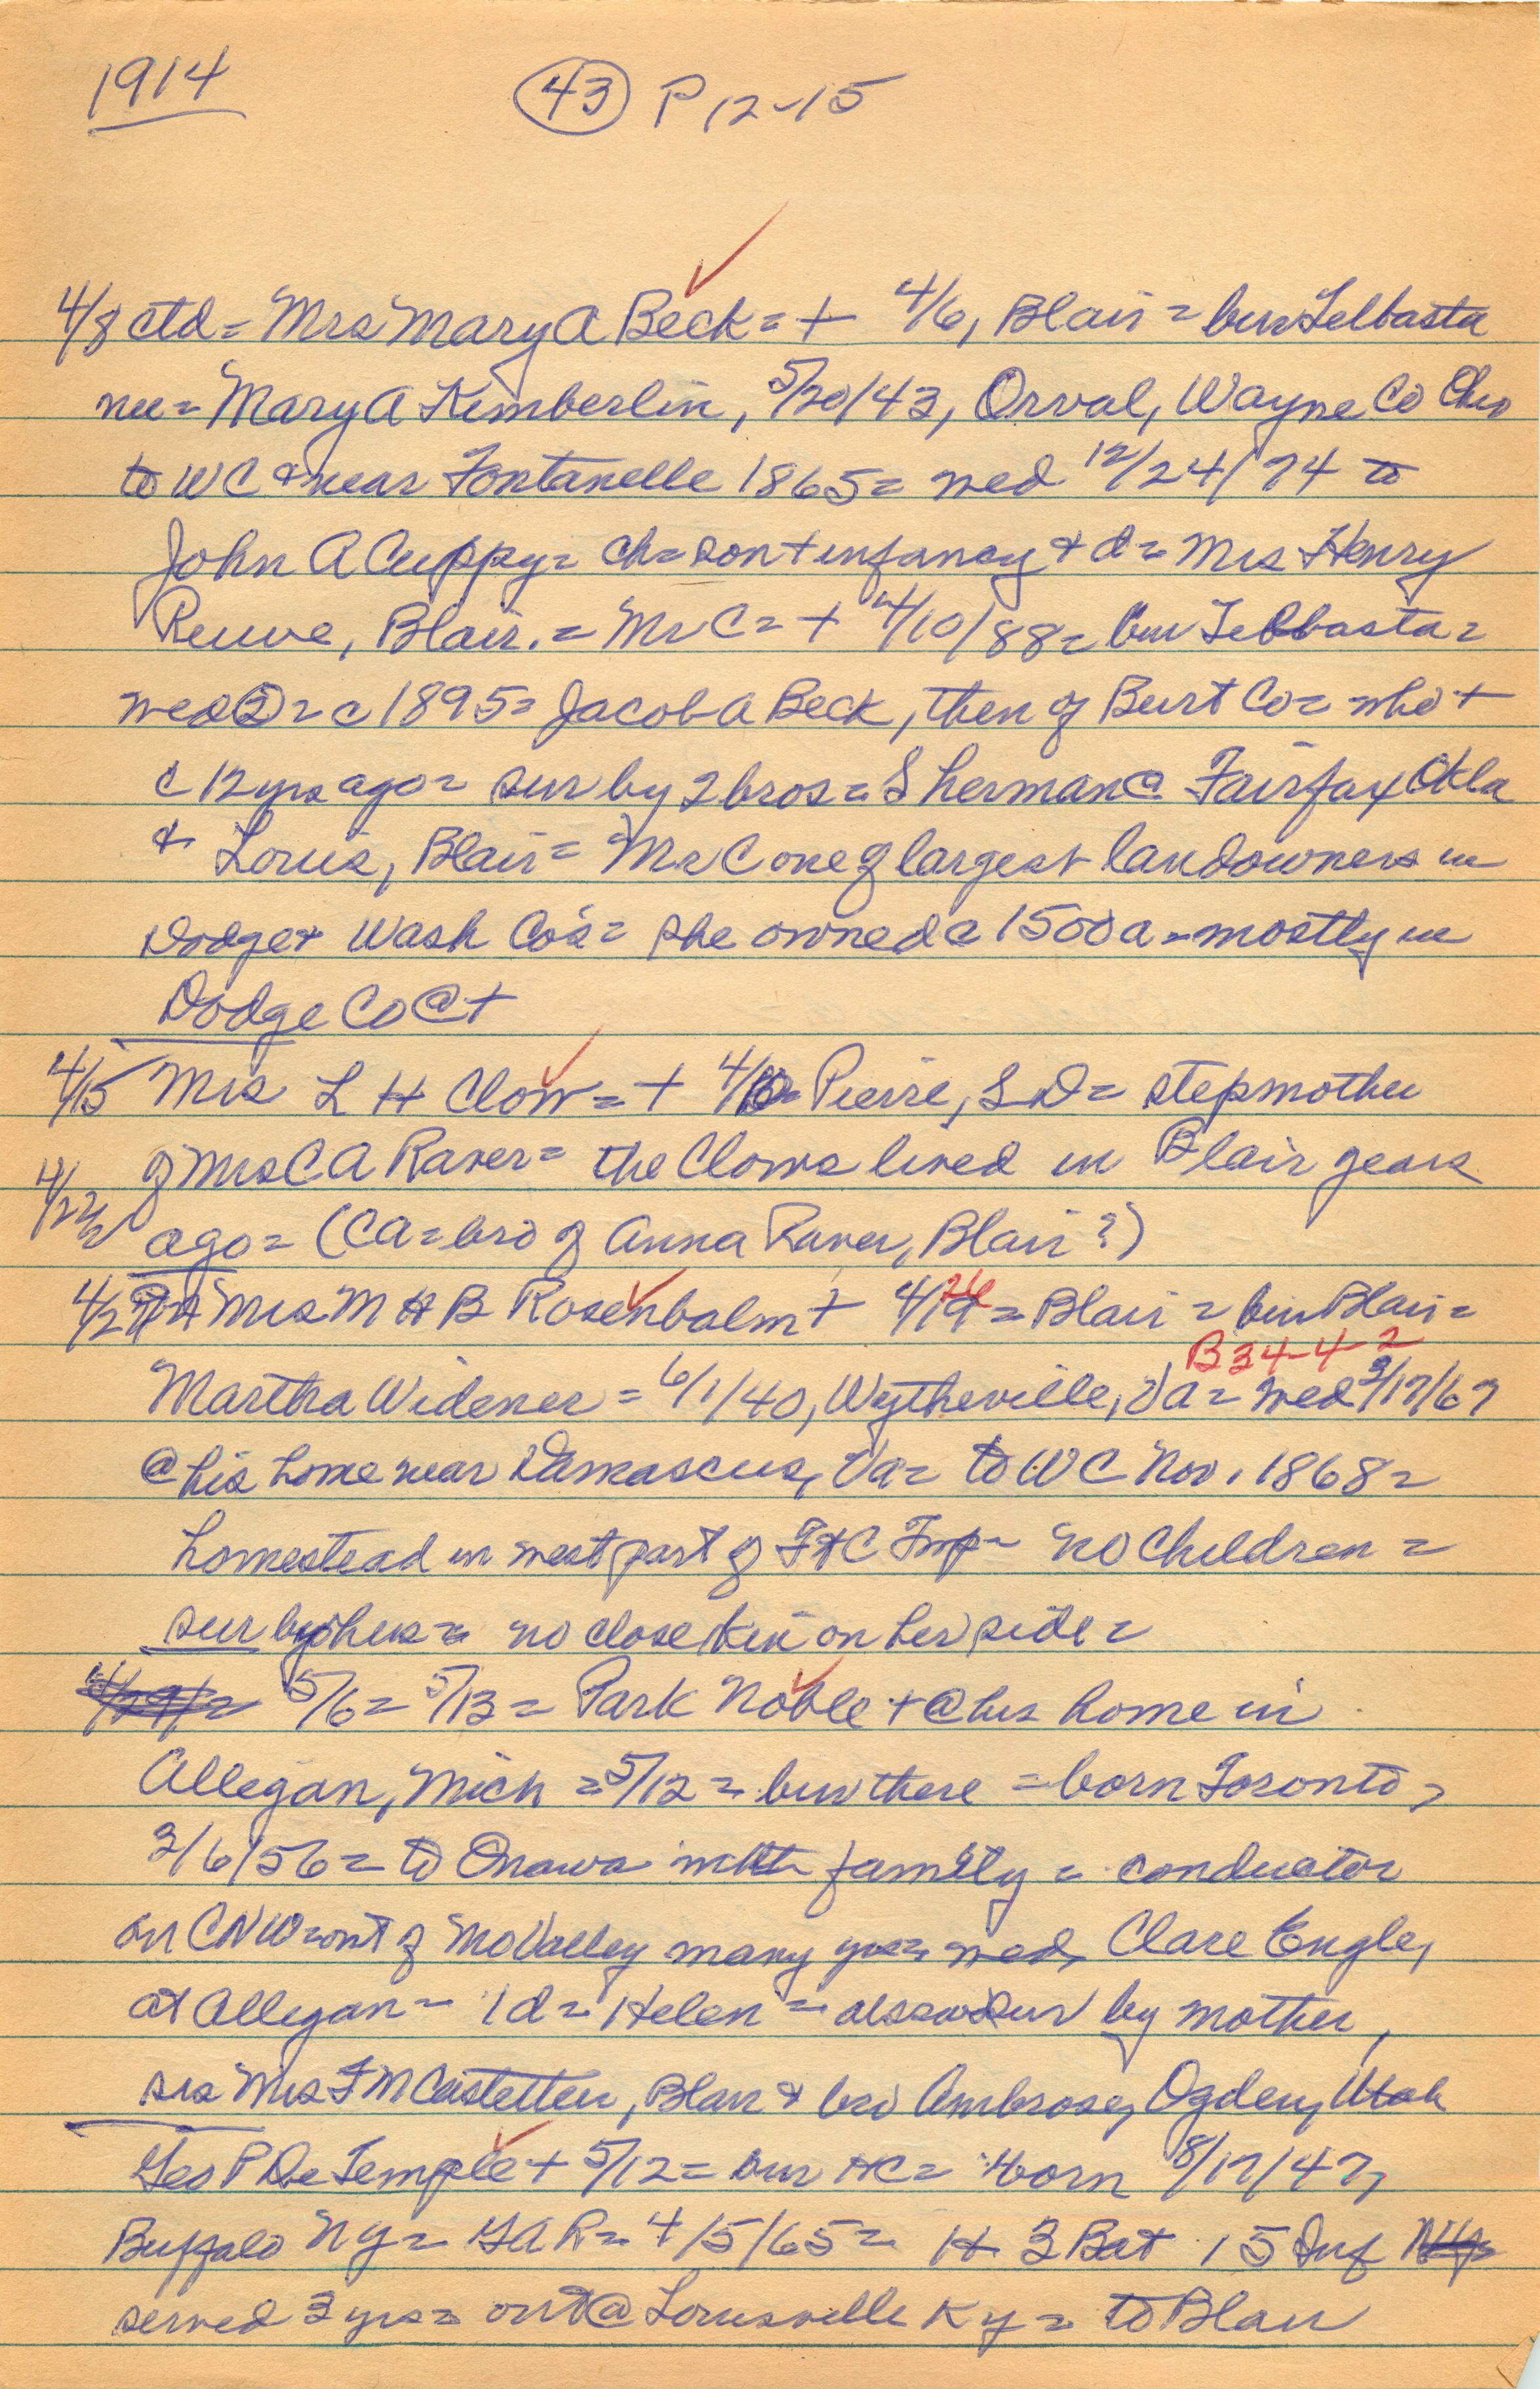 1914 43 P 12-15
4/8 ctd = Mrs Mary A Beck = + 4/6, Blair = bur Telbasta
nee = Mary A Kimberlin, 5/20/43, Orval, Wayne Co Ohio
to WC & near Fontanelle 1865 = wed 12/24/74 to
John A Cuppy = ch = son + infancy & d = Mrs Henry
Reuwe, Blair. = Mr C = + 4/10/88 = bur Telbasta =
wed 2 = c 1895 = Jacob A Beck, then of Burt Co = who +
c 12 yrs ago = sur by 2 bros = Sherman @ Fairfax Okla
& Louis, Blair = Mr C one of largest landowners in
Dodge & Wash Co's = she owned c 1500 a = mostly in
Dodge Co @ +
4/15 Mrs L H Clow = + 4/10 = Pierre, S D = stepmother
of Mrs C A Raver = the Clows lived in Blair years
4/22 ago = (CA = bro of Anna Raver, Blair?)
4/29 Mrs M H B Rosenbalm + 4/19 26 = Blair = bur Blair =
B 34-4-2
Martha Widener = 6/1/40, Wytheville, Va = wed 3/17/67
@ his home near Damascus, Va = to WC Nov. 1868 =
homestead in west part of Ft C Twp = no children =
sur by hus = no close kin on her side =
4/29 = 5/6 = 5/13 = Park Noble + @ his home in
Allegan, Mich = 5/12 = bur there = born Toronto,
3/6/56 = to Onawa with family = conductor
on CNW out of Mo Valley many yrs = wed, Clare Engle,
at Allegan = 1 d = Helen = also sur by mother,
sis Mrs F M Castetter, Blair & bro Ambrose, Ogden, Utah
Geo P De Temple + 5/12 = bur HC = born 8/17/47,
Buffalo N Y = GAR = 4/5/65 = H 3 Bat 15 Inf
served 3 yrs = out @ Louisville Ky = to Blair